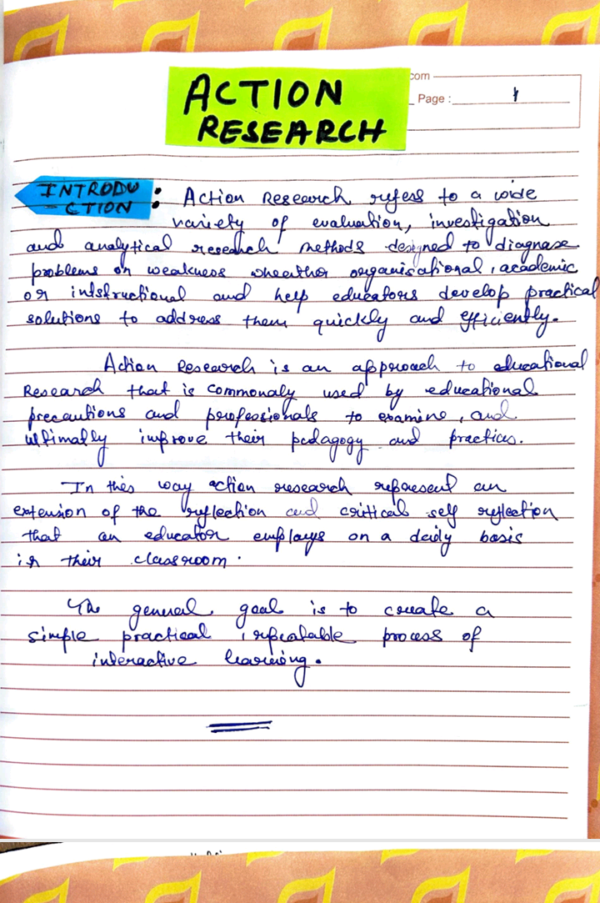 com
Page : 1
ACTION
RESEARCH
INTRODU
-CTION :
Action Research refers to a wide
variety of evaluation, investigation
and analytical research methods designed to diagnase
problems or weakness wheather organisational, academic
or intstructional and help educators develop practical
solutions to address them quickly and efficiently.
Action Research is an approach to educational
Research that is commonaly used by educational
precautions and professionals to examine, and
ultimally improve their pedagogy and practices.
In this way action research represent an
extension of the reflection and critical self reflection
that an educator employs on a daily basis
in their classroom.
The general goal is to create a
simple practical, repeatable process of
interactive learning.